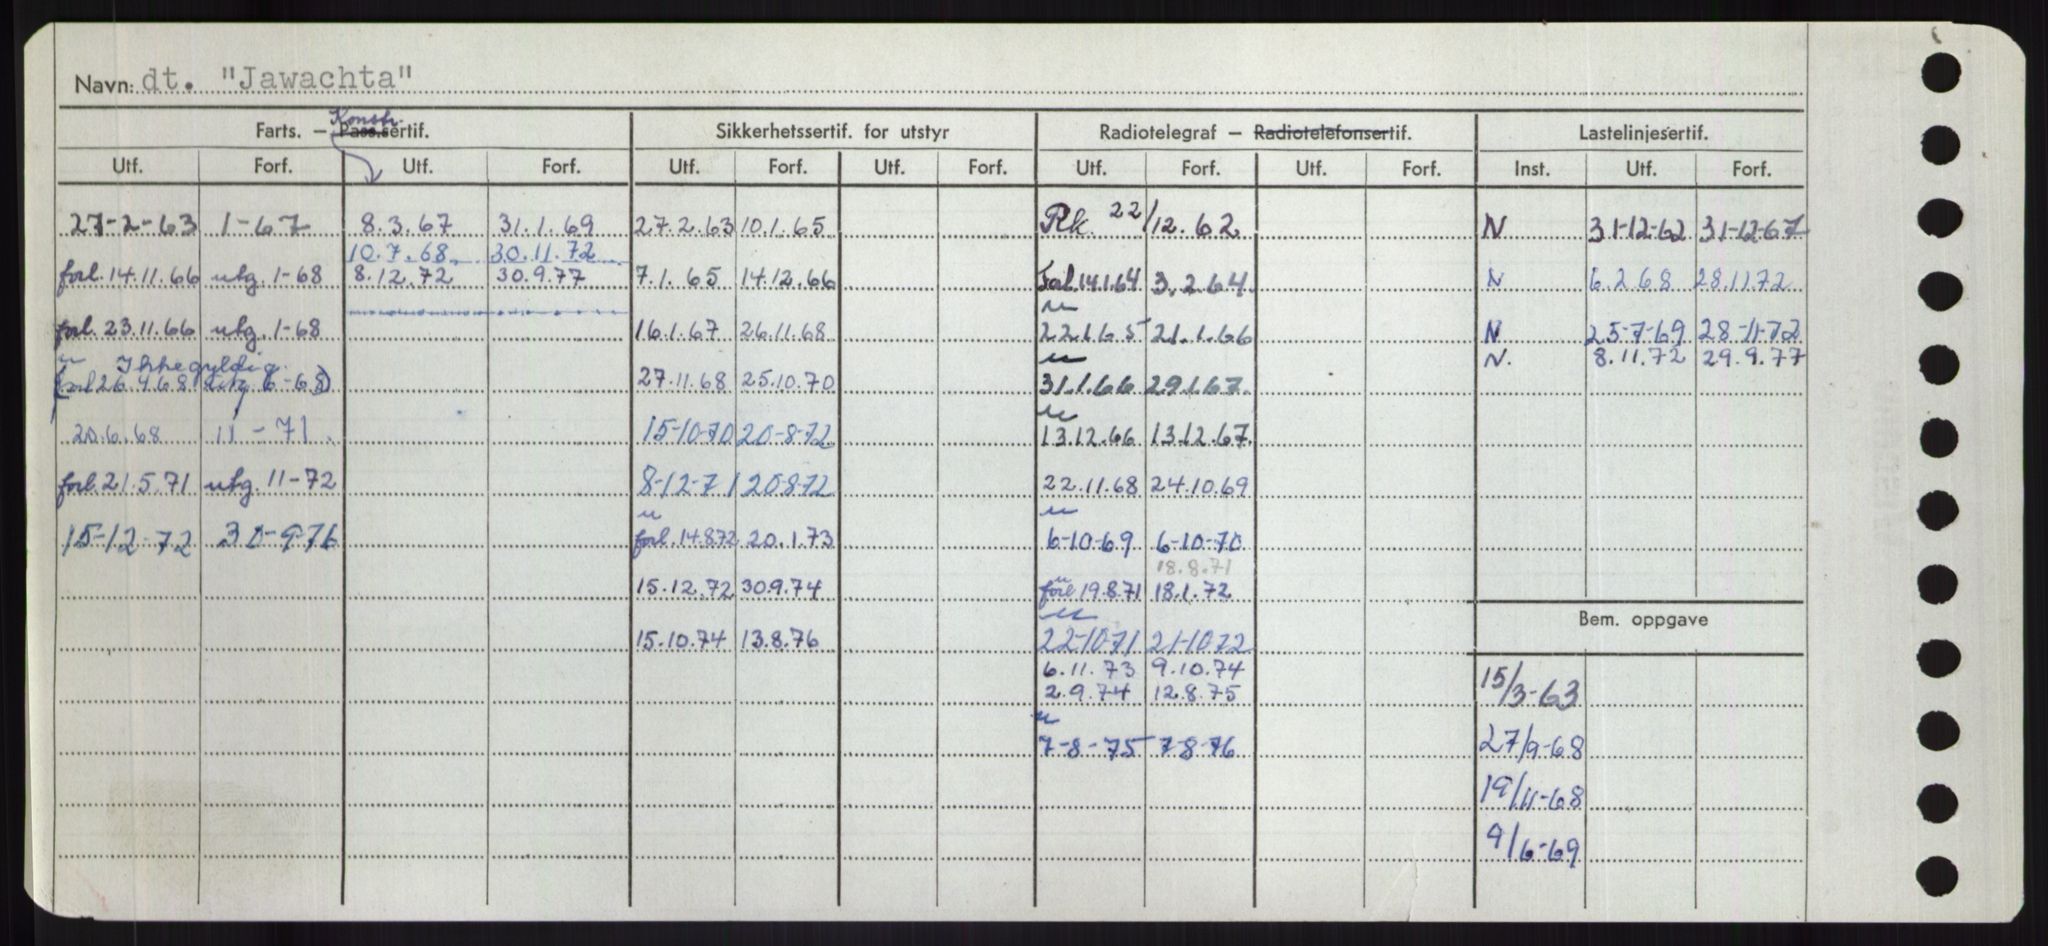 Navn: dt. "Jawachta"
Konstr.
Farts. – Pass.sertif. Sikkerhetssertif. for utstyr Radiotelegraf – Radiotelefonsertif. Lastelinjesertif.
Utf. Forf. Utf. Forf. Utf. Forf. Utf. Forf. Utf. Forf. Utf. Forf. Inst. Utf. Forf.
27-2-63 1-67 8.3.67 31.1.69 27.2.63 10.1.65 Rk. 22/12.62 N 31-12-62 31-12-67
10.7.68. 30.11.72
forl. 14.11.66 utg. 1-68 8.12.72 30.9.77 7.1.65 14.12.66 Forl. 14.1.64 3.2.64. N 6.2.68 28.11.72
"
forl. 23.11.66 utg. 1-68 16.1.67 26.11.68 22.1.65 21.1.66 N 25-7-69 28-11-72
" Ikke gyldig. " N. 8.11.72 29.9.77
(forl 26.4.68 utg 6-68) 27.11.68 25.10.70 31.1.66 29.1.67.
"
20.6.68 11-71. 15-10-70 20-8-72 13.12.66 13.12.67.
forl. 21.5.71 utg. 11-72 8-12-71 20-8-72 22.11.68 24.10.69
" "
15-12-72 30-9-76 forl. 14.8.72 20.1.73 6-10-69 6-10-70
" 18.8.71
15.12.72 30.9.74 forl 19.8.71 18.1.72
" Bem. oppgave
15.10.74 13.8.76 22-10-71 21-10-72
6.11.73 9.10.74
2.9.74 12.8.75 15/3-63
"
7-8-75 7-8-76 27/9-68
19/11-68
9/6-69